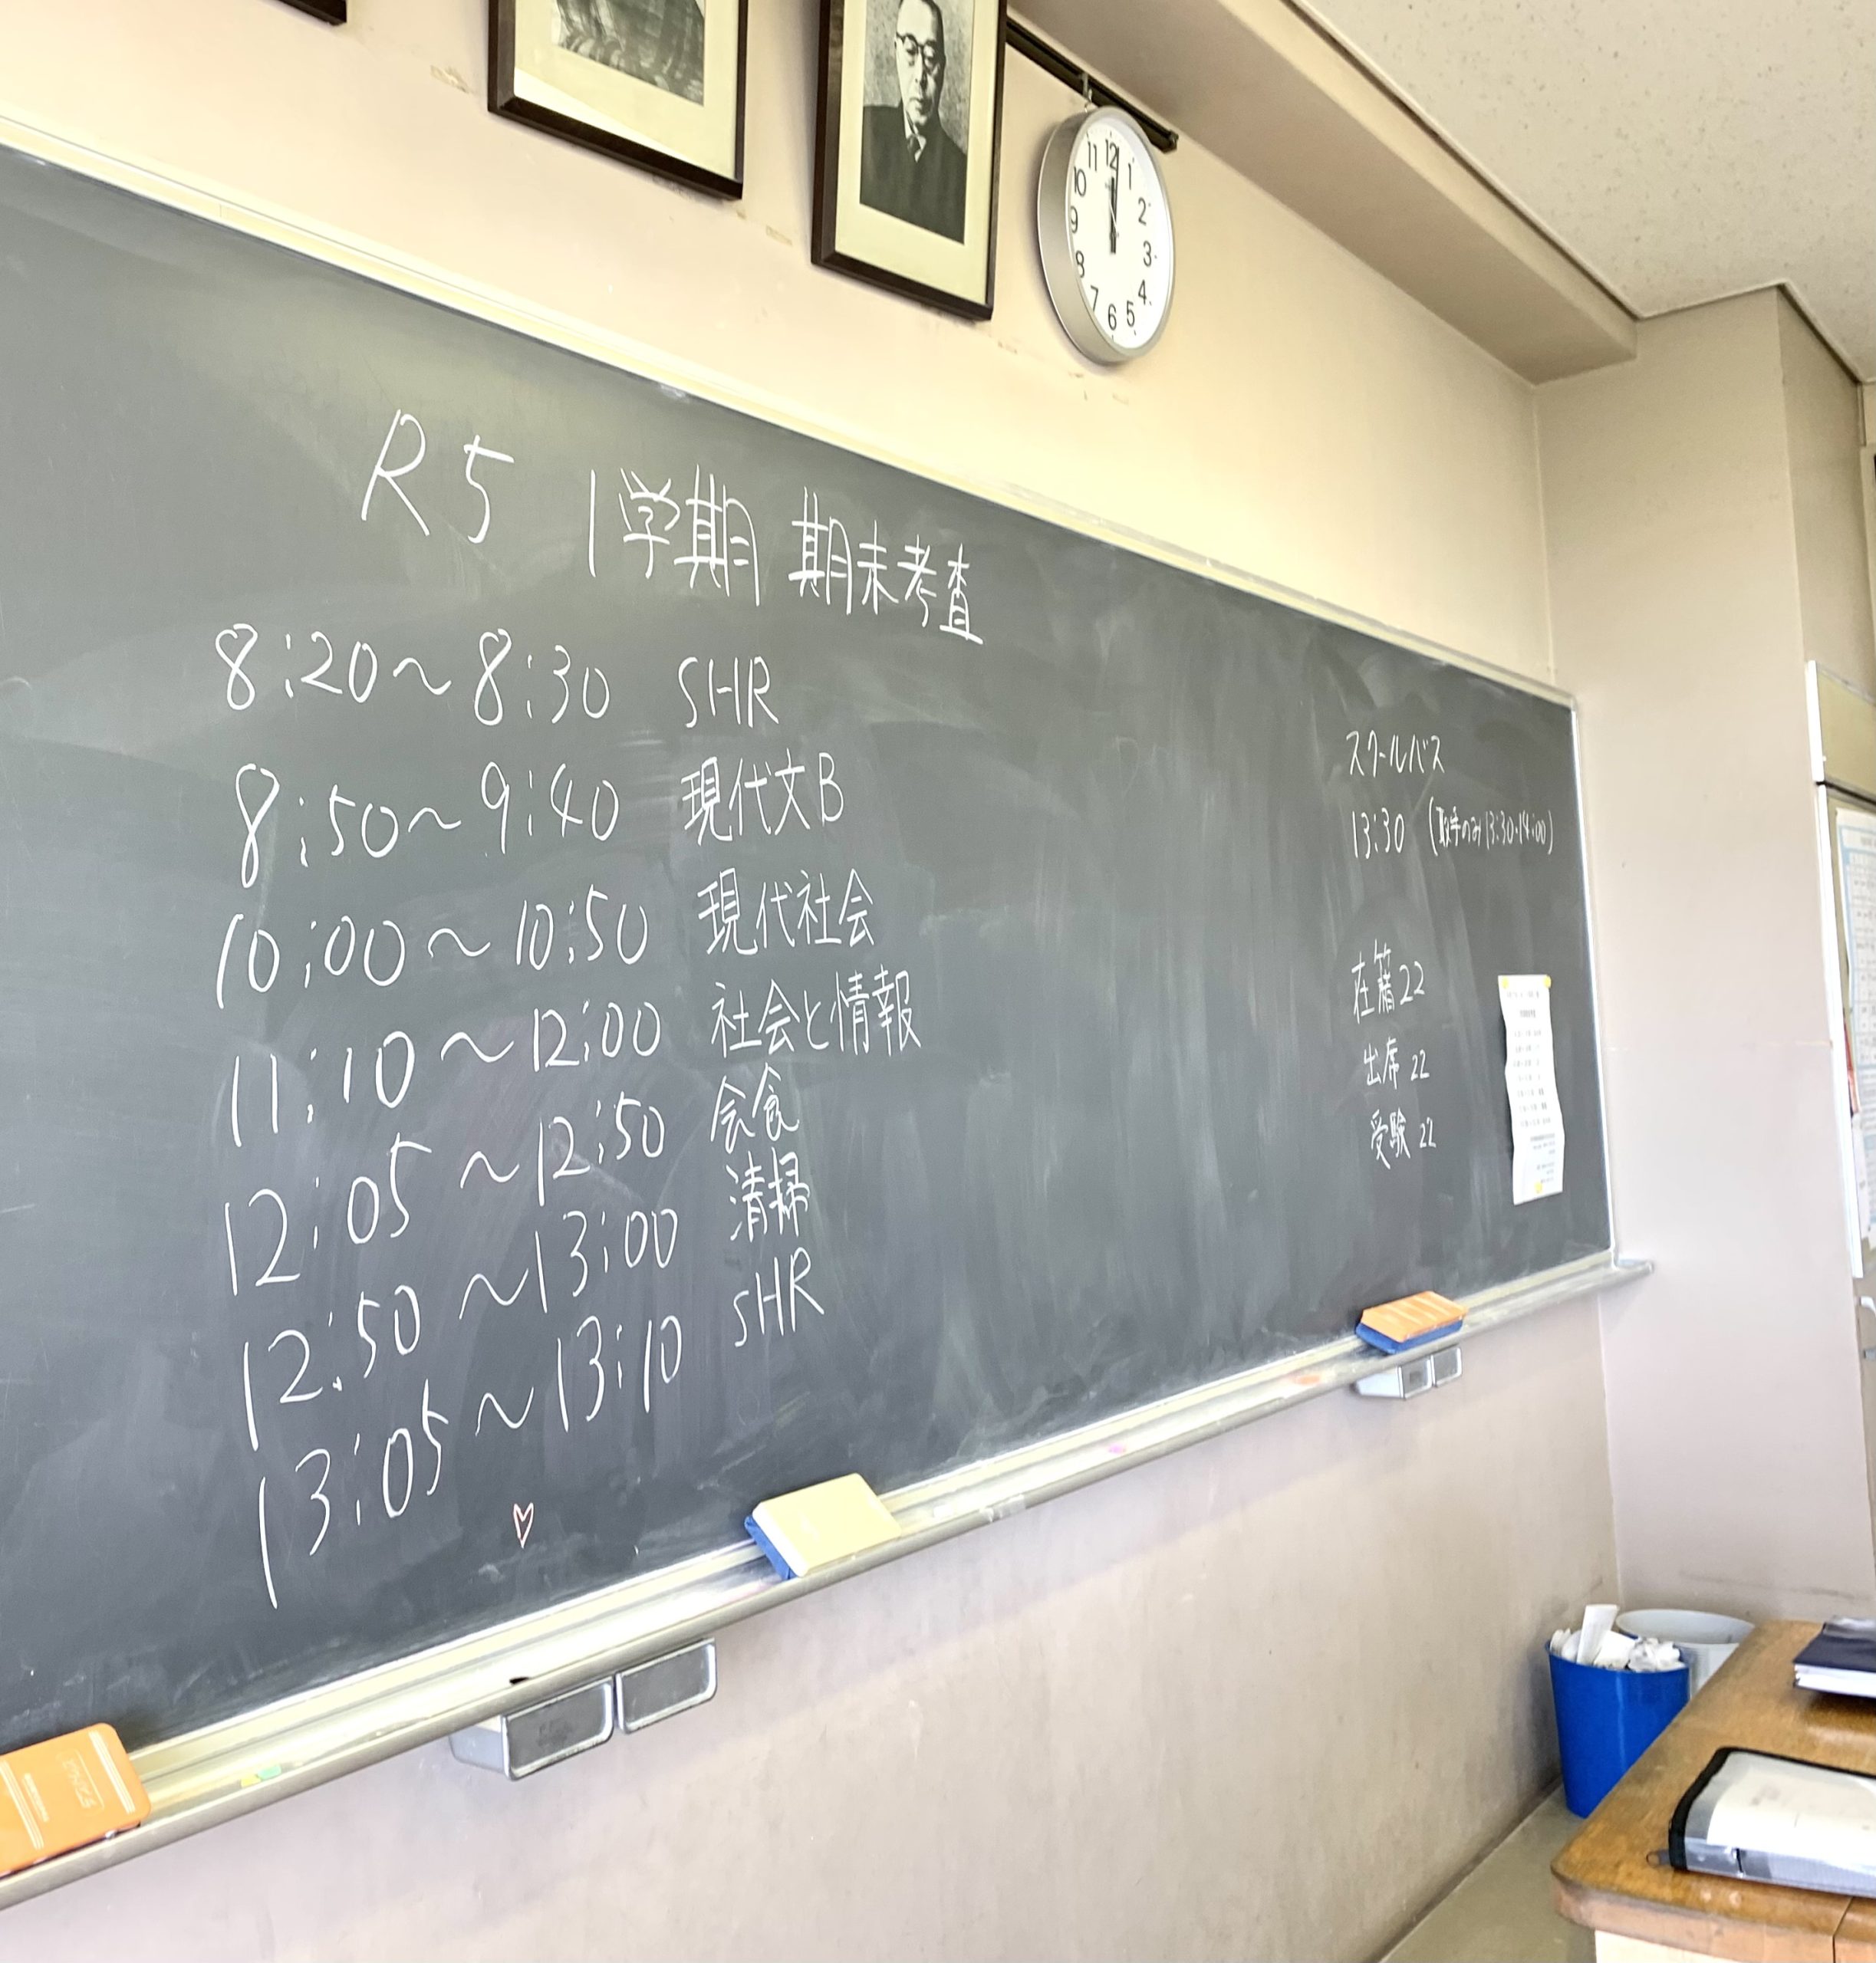 R5 1学期 期末考査
8:20〜8:30 SHR
8:50〜9:40 現代文B
10:00〜10:50 現代社会
11:10〜12:00 社会と情報
12:05〜12:50 会食
12:50〜13:00 清掃
13:05〜13:10 SHR
スクールバス
13:30 (取手のみ13:30・14:00)
在籍22
出席22
受験22
11 12 1
10 2
9 3
8 4
7 6 5